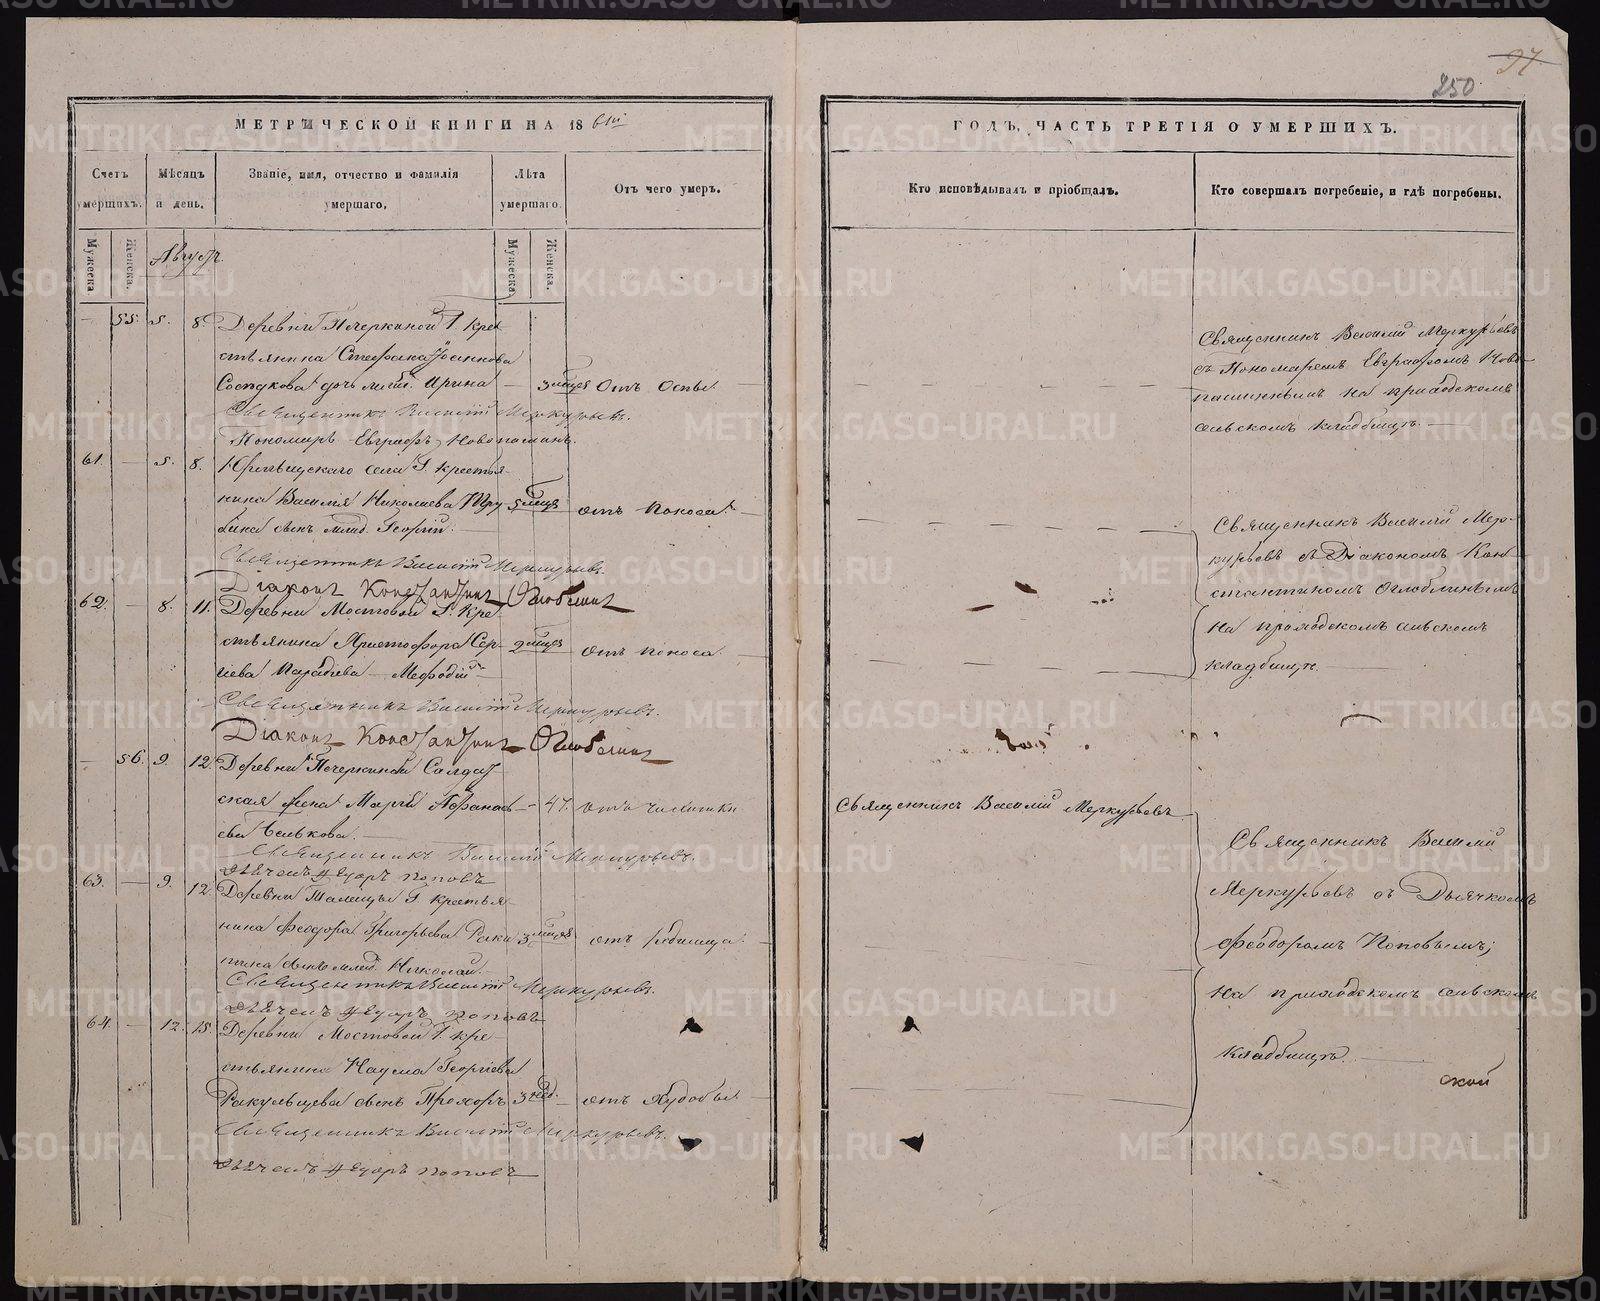 97
250
МЕТРИЧЕСКОЙ КНИГИ НА 18 61й
ГОДЪ, ЧАСТЬ ТРЕТІЯ О УМЕРШИХЪ.
Счетъ умершихъ.
Мѣсяцъ и день.
Званіе, имя, отчество и фамилія умершаго.
Лѣта умершаго.
Отъ чего умеръ.
Кто исповѣдывалъ и пріобщалъ.
Кто совершалъ погребеніе, и гдѣ погребены.
Мужеска.
Женска.
Мужеска.
Женска.
Августъ.
— 55. 5. 8. Деревни Печеркиной Г. кре-
стьянина Стефана Іоаннова
дочь млад. Ирина — 3 мѣсяца Отъ Оспы
Священникъ Василій Меркурьевъ.
Пономарь Евграфъ Новопашинъ.
Священникъ Василій Меркурьевъ
съ Пономаремъ Евграфомъ Ново-
пашинымъ на приходскомъ
сельскомъ кладбищѣ.
61. — 5. 8. села Г. крестья-
нина Василія Николаева Тру- 5 мѣсяца отъ поноса
бина сынъ млад. Георгій.
Священникъ Василій Меркурьевъ.
Діаконъ Константинъ Оглоблинъ
Священникъ Василій Мер-
курьевъ съ Діакономъ Кон-
стантиномъ Оглоблинымъ
на приходскомъ сельскомъ
кладбищѣ.
62. — 8. 11. Деревни Мостовой Г. кре-
стьянина Христофора Сер- 2 мѣсяца отъ поноса
гіева Меѳодій
Священникъ Василій Меркурьевъ.
Діаконъ Константинъ Оглоблинъ
— 56. 9. 12. Деревни Печеркиной Солдат-
ская жена Марія Аѳанась- — 47. отъ чахотки
ева Белькова.
Священникъ Василій Меркурьевъ.
Дьячекъ Ѳедоръ Поповъ
Священникъ Василій Меркурьевъ
Священникъ Василій
Меркурьевъ съ Дьячкомъ
Ѳеодоромъ Поповымъ;
на приходскомъ сельскомъ
кладбищѣ.
63. — 9. 12. Деревни Талицы Г. крестья-
нина Ѳеодора Григорьева Раки- 3 мѣсяца отъ родимца
тина сынъ млад. Николай.
Священникъ Василій Меркурьевъ.
Дьячекъ Ѳедоръ Поповъ
64. — 12. 15. Деревни Мостовой Г. кре-
стьянина Наума Георгіева
Ракульцева сынъ Прохоръ 3 нед. — отъ худобы
Священникъ Василій Меркурьевъ.
Дьячекъ Ѳедоръ Поповъ
ской
METRIKI.GASO-URAL.RU